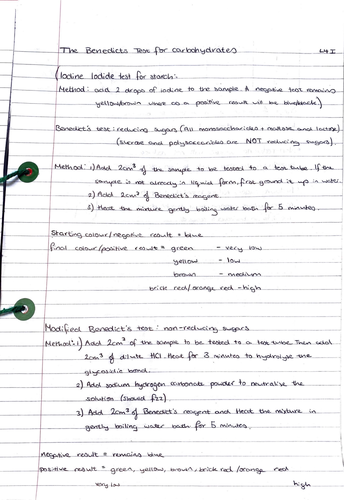 The Benedicts Test for carbohydrates
(Iodine Iodide test for starch:
Method: add 2 drops of iodine to the sample. A negative test remains
yellow/brown where as a positive result will be blue/black)
Benedict's test: reducing sugars (All monosaccharides + maltose and lactose)
(sucrose and polysaccharides are NOT reducing sugars).
Method: 1) Add 2cm³ of the sample to be tested to a test tube. If the
sample is not already in liquid form, first ground it up in water.
2) Add 2cm³ of Benedict's reagent.
3) Heat the mixture gently boiling water bath for 5 minutes.
Starting colour/negative result = blue
final colour/positive result = green - very low
yellow - low
brown - medium
brick red/orange red - high
Modified Benedict's test: non-reducing sugars
Method: 1) Add 2cm³ of the sample to be tested to a test tube. Then add
2cm³ of dilute HCl. Heat for 3 minutes to hydrolyse the
glycosidic bond.
2) Add sodium hydrogen carbonate powder to neutralise the
solution (should fizz).
3) Add 2cm³ of Benedict's reagent and Heat the mixture in
gently boiling water bath for 5 minutes.
negative result = remains blue
positive result = green, yellow, brown, brick red /orange red
very low high